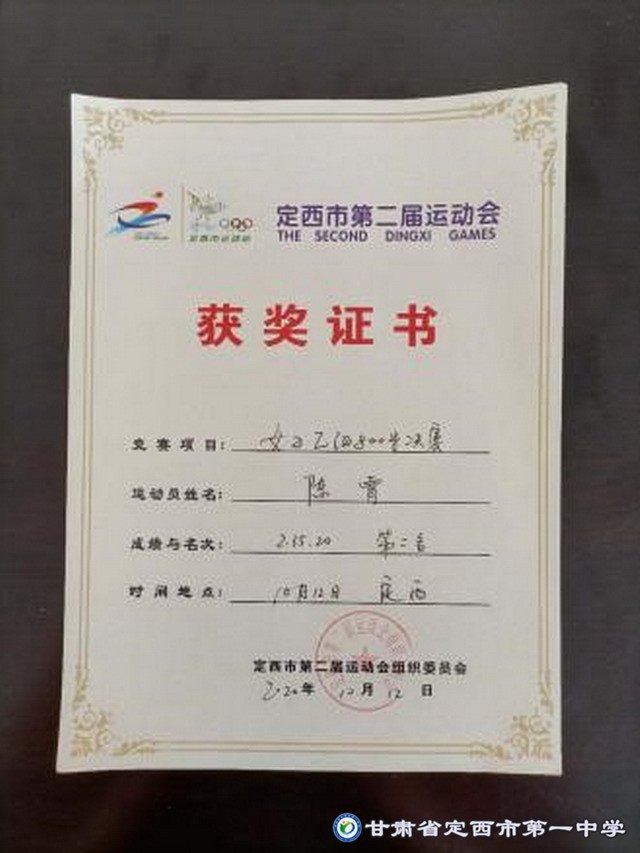 定西市运动
定西市第二届运动会
THE SECOND DINGXI GAMES
获奖证书
竞赛项目： 女子乙组800米决赛
运动员姓名： 陈霄
成绩与名次： 2.15.20 第二名
时间地点： 10月12日 定西
定西市第二届运动会组织委员会
2020年 10月 12日
甘肃省定西市第一中学